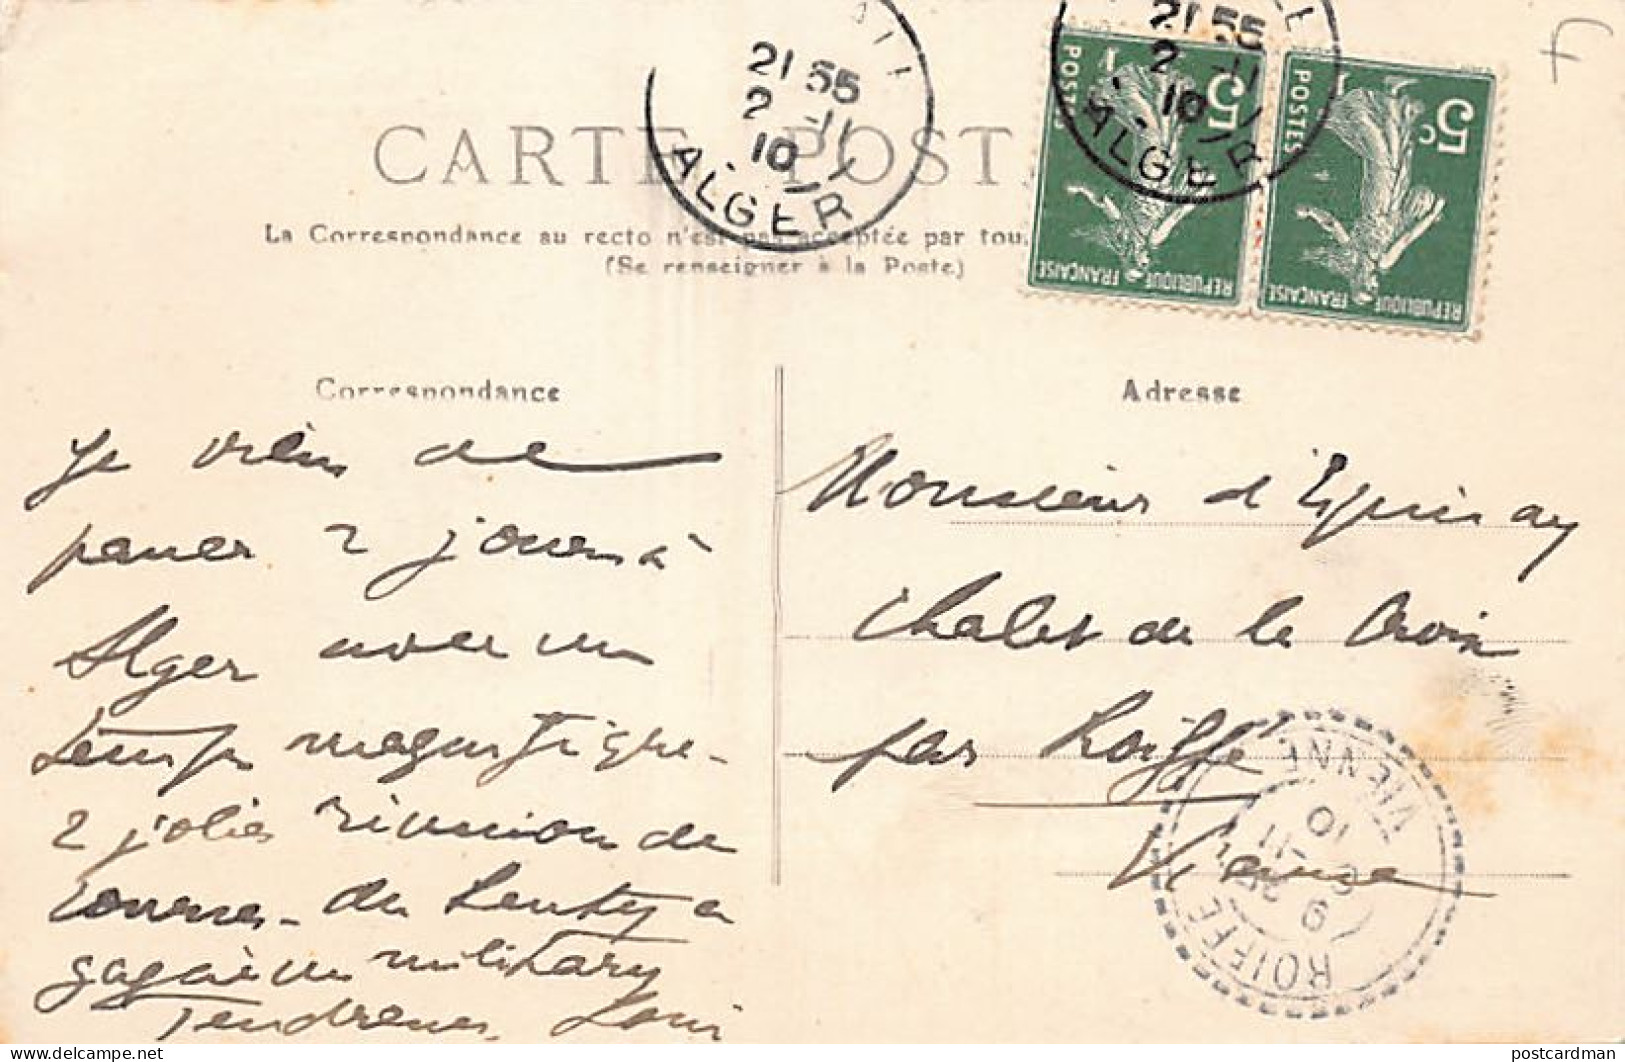 CARTE POST
La Correspondance au recto n'est pas acceptée par tou
(Se renseigner à la Poste)
21 55
2 -11
10
ALGER
21 55
2 -11
10
ALGER
5c
POSTES
REPUBLIQUE FRANÇAISE
5c
POSTES
REPUBLIQUE FRANÇAISE
Correspondance
Je viens de
passer 2 jours à
Alger avec un
temps magnifique -
2 jolies réunions de
courses - de
gagné un military
Tendresses, Louis
Adresse
Monsieur d'Epinay
Chalet de la Croix
par Roiffé
Vienne
ROIFFE
VIENNE
-11
10
postcardman
www.delcampe.net